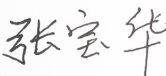 张宝华